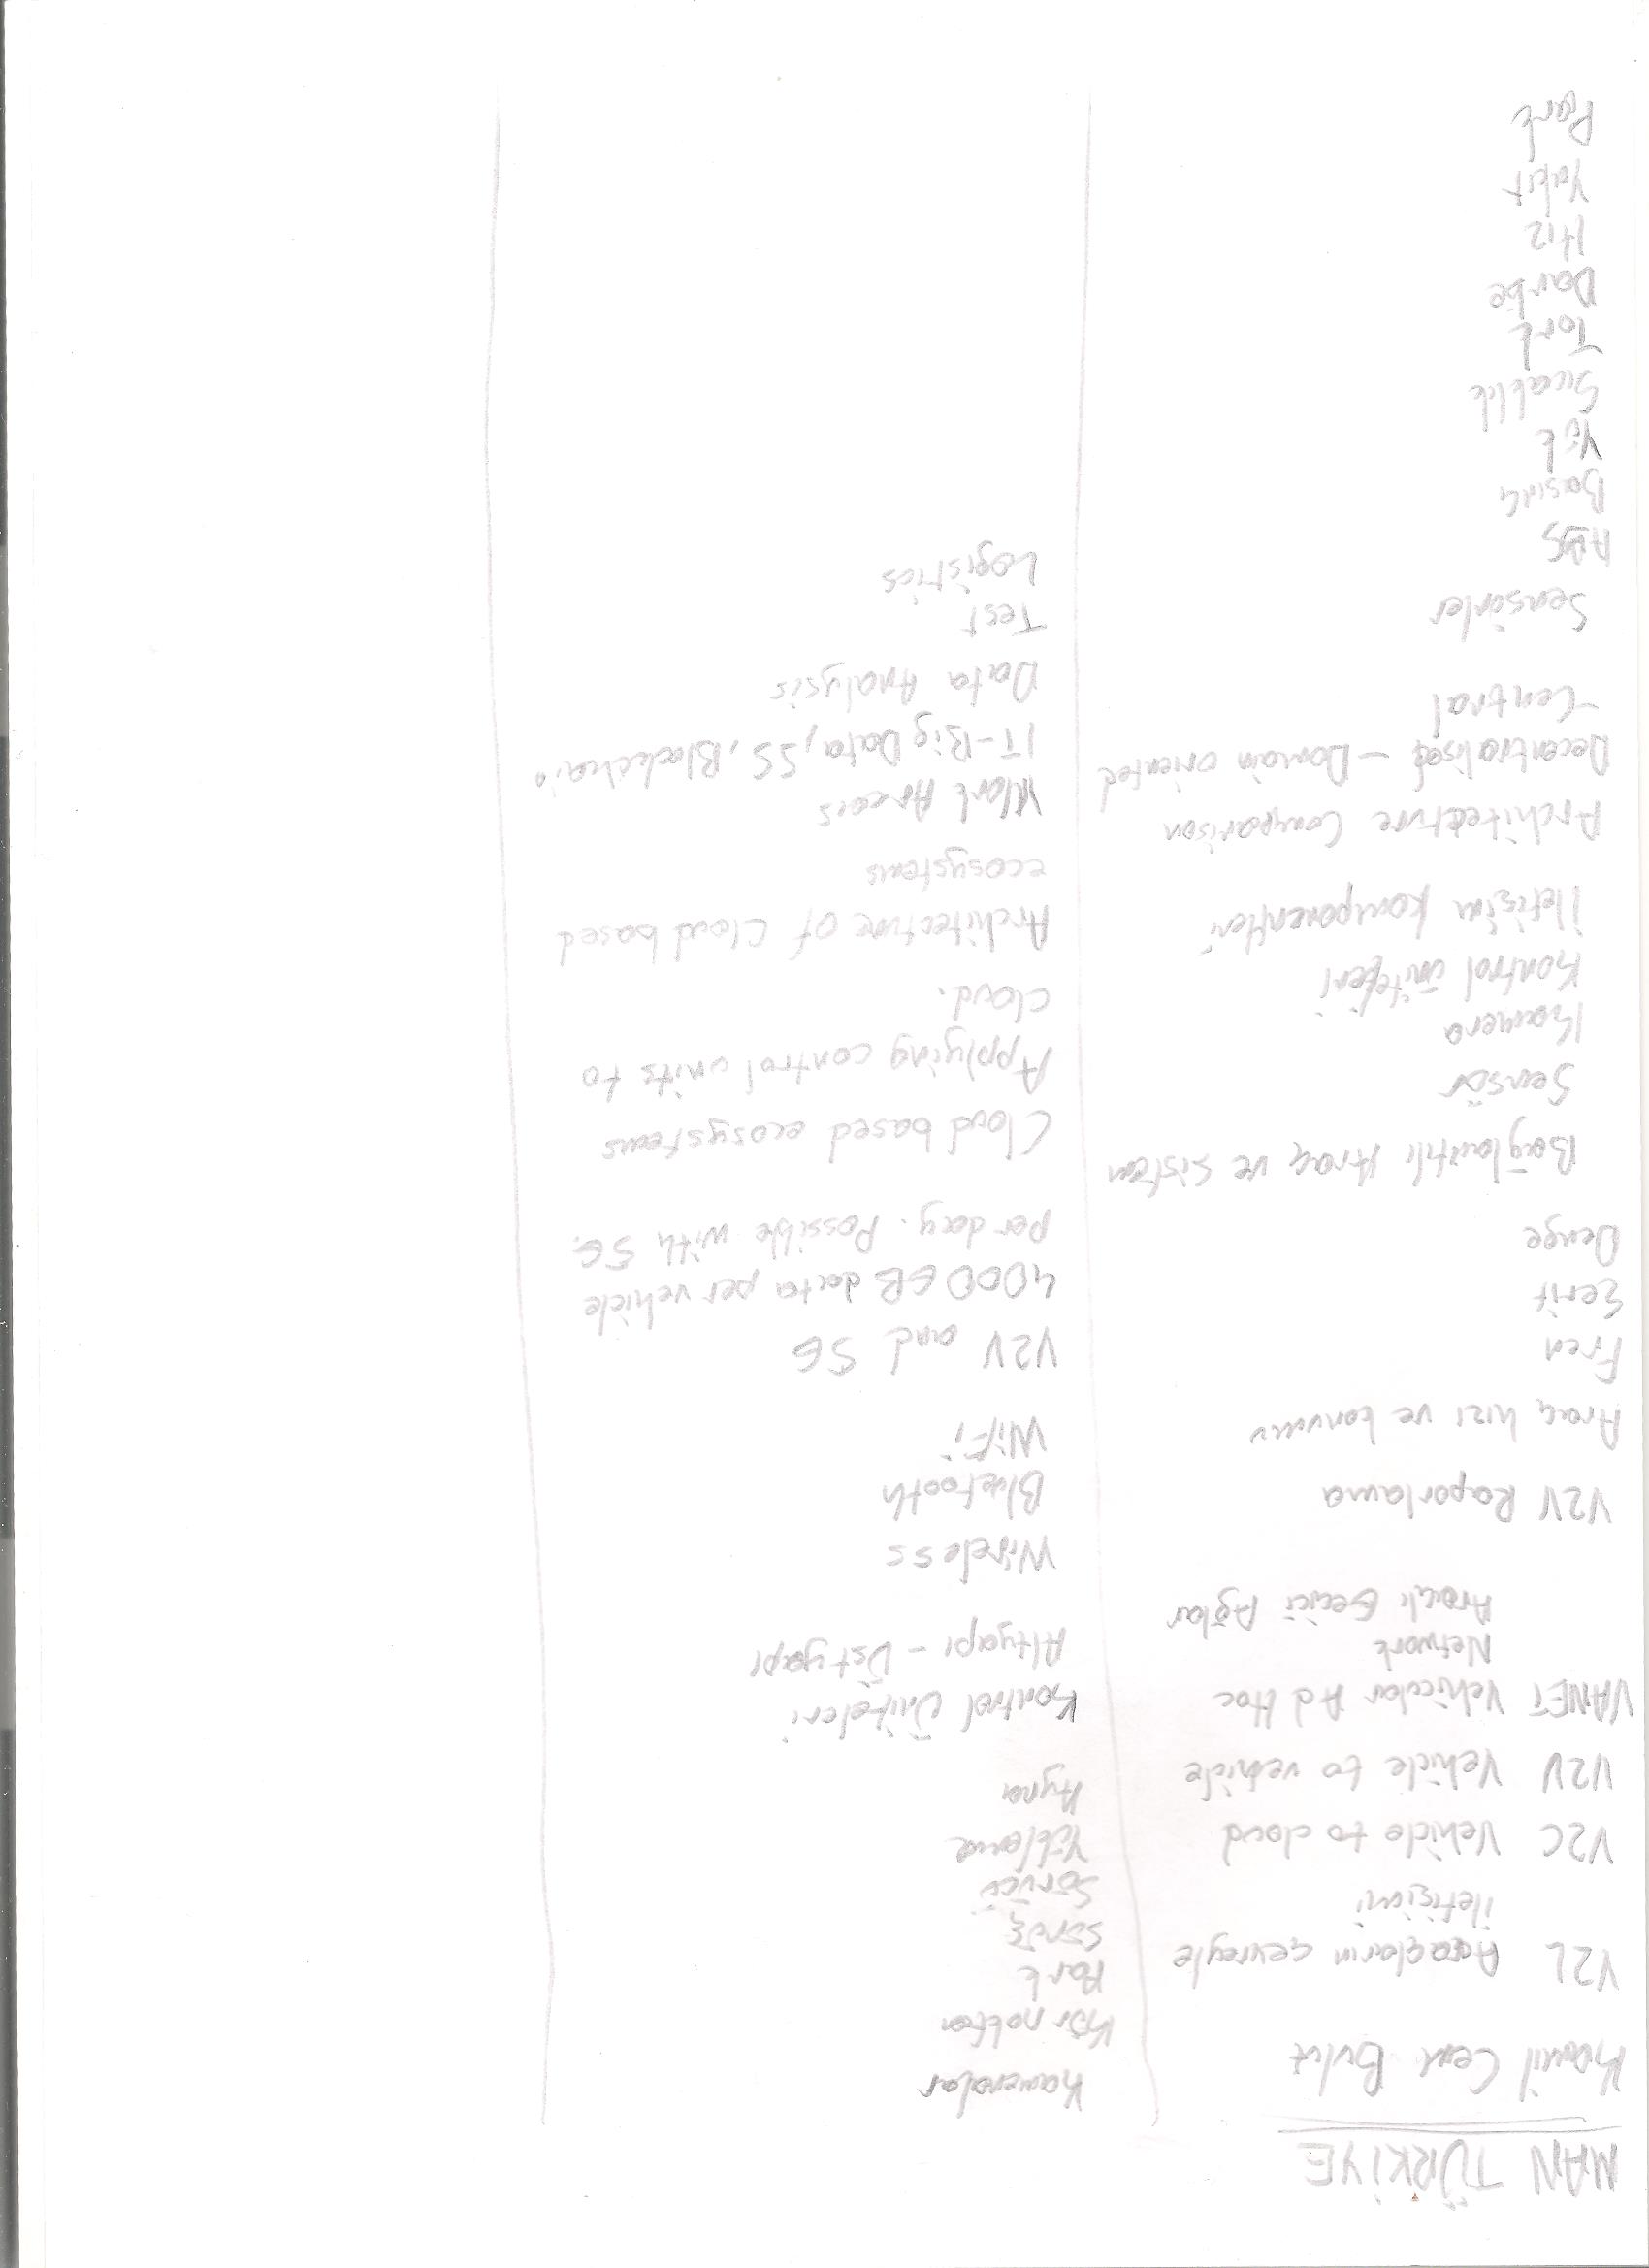 MAN TÜRKİYE
Kamil Cem Bulut
V2L Araçların çevreyle
iletişimi
V2C Vehicle to cloud
V2V Vehicle to vehicle
VANET Vehicular Ad Hoc
Network
Araçlı Geçici Ağlar
V2V Raporlama
Araç hızı ve konumu
Fren
Şerit
Denge
Bağlantılı Araç ve sistem
Sensör
Kamera
Kontrol üniteleri
İletişim komponentleri
Architecture Comparison
Decentralised - Domain oriented
- Central
Sensörler
ABS
Basınç
Yük
Sıcaklık
Tork
Darbe
Hız
Yakıt
Park
Kameralar
Kör nokta
Park
Sürüş
Sürücü
Yükleme
Ayna
Kontrol Üniteleri
Altyapı - Üstyapı
Wireless
Bluetooth
WiFi
V2V and 5G
4000 GB data per vehicle
per day. Possible with 5G.
Cloud based ecosystems
Applying control units to
cloud.
Architecture of Cloud based
ecosystems
Work Areas
IT-Big Data, SS, Blockchain
Data Analysis
Test
Logistics